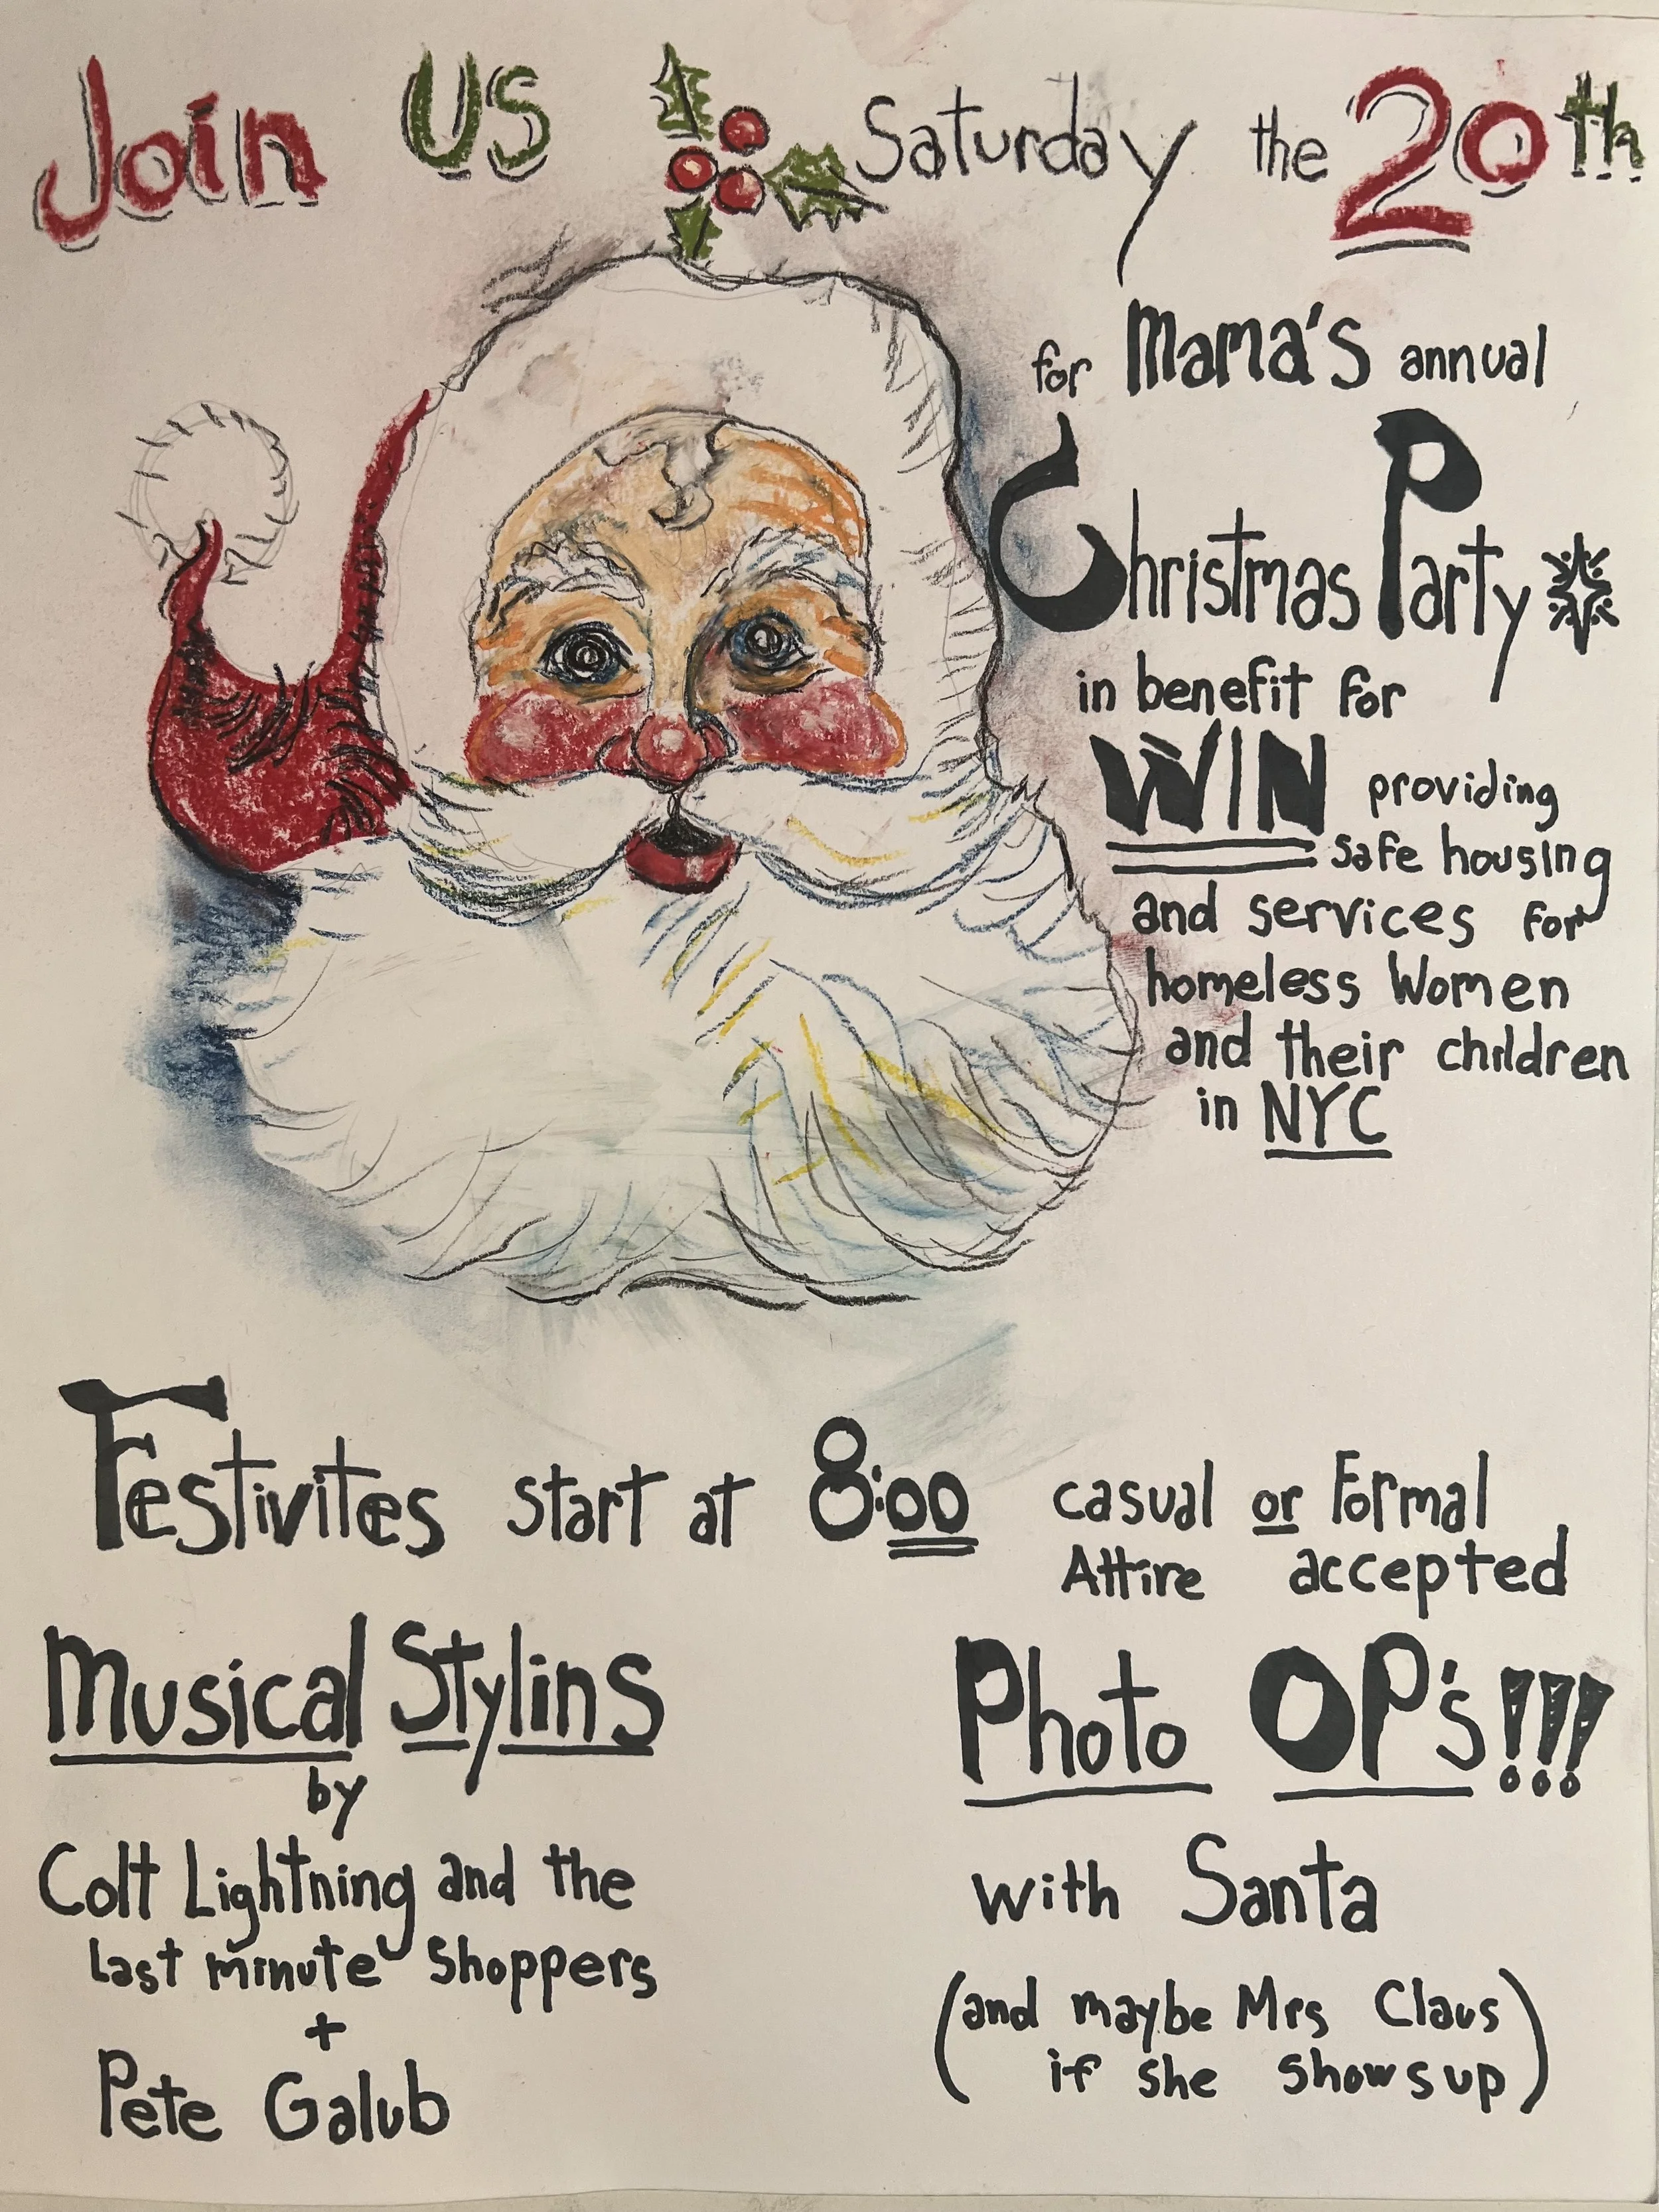 Join US Saturday the 20th
for Mama's annual
Christmas Party
in benefit for
WIN providing
safe housing
and services for
homeless Women
and their children
in NYC
Festivites start at 8:00
casual or Formal
Attire accepted
Musical Stylins
by
Colt Lightning and the
Last minute Shoppers
+
Pete Galub
Photo OP's!!!
with Santa
(and maybe Mrs Claus
if she shows up)